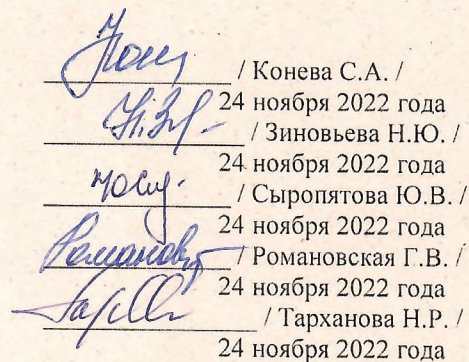 / Конева С.А. /
24 ноября 2022 года
/ Зиновьева Н.Ю. /
24 ноября 2022 года
/ Сыропятова Ю.В. /
24 ноября 2022 года
/ Романовская Г.В. /
24 ноября 2022 года
/ Тарханова Н.Р. /
24 ноября 2022 года